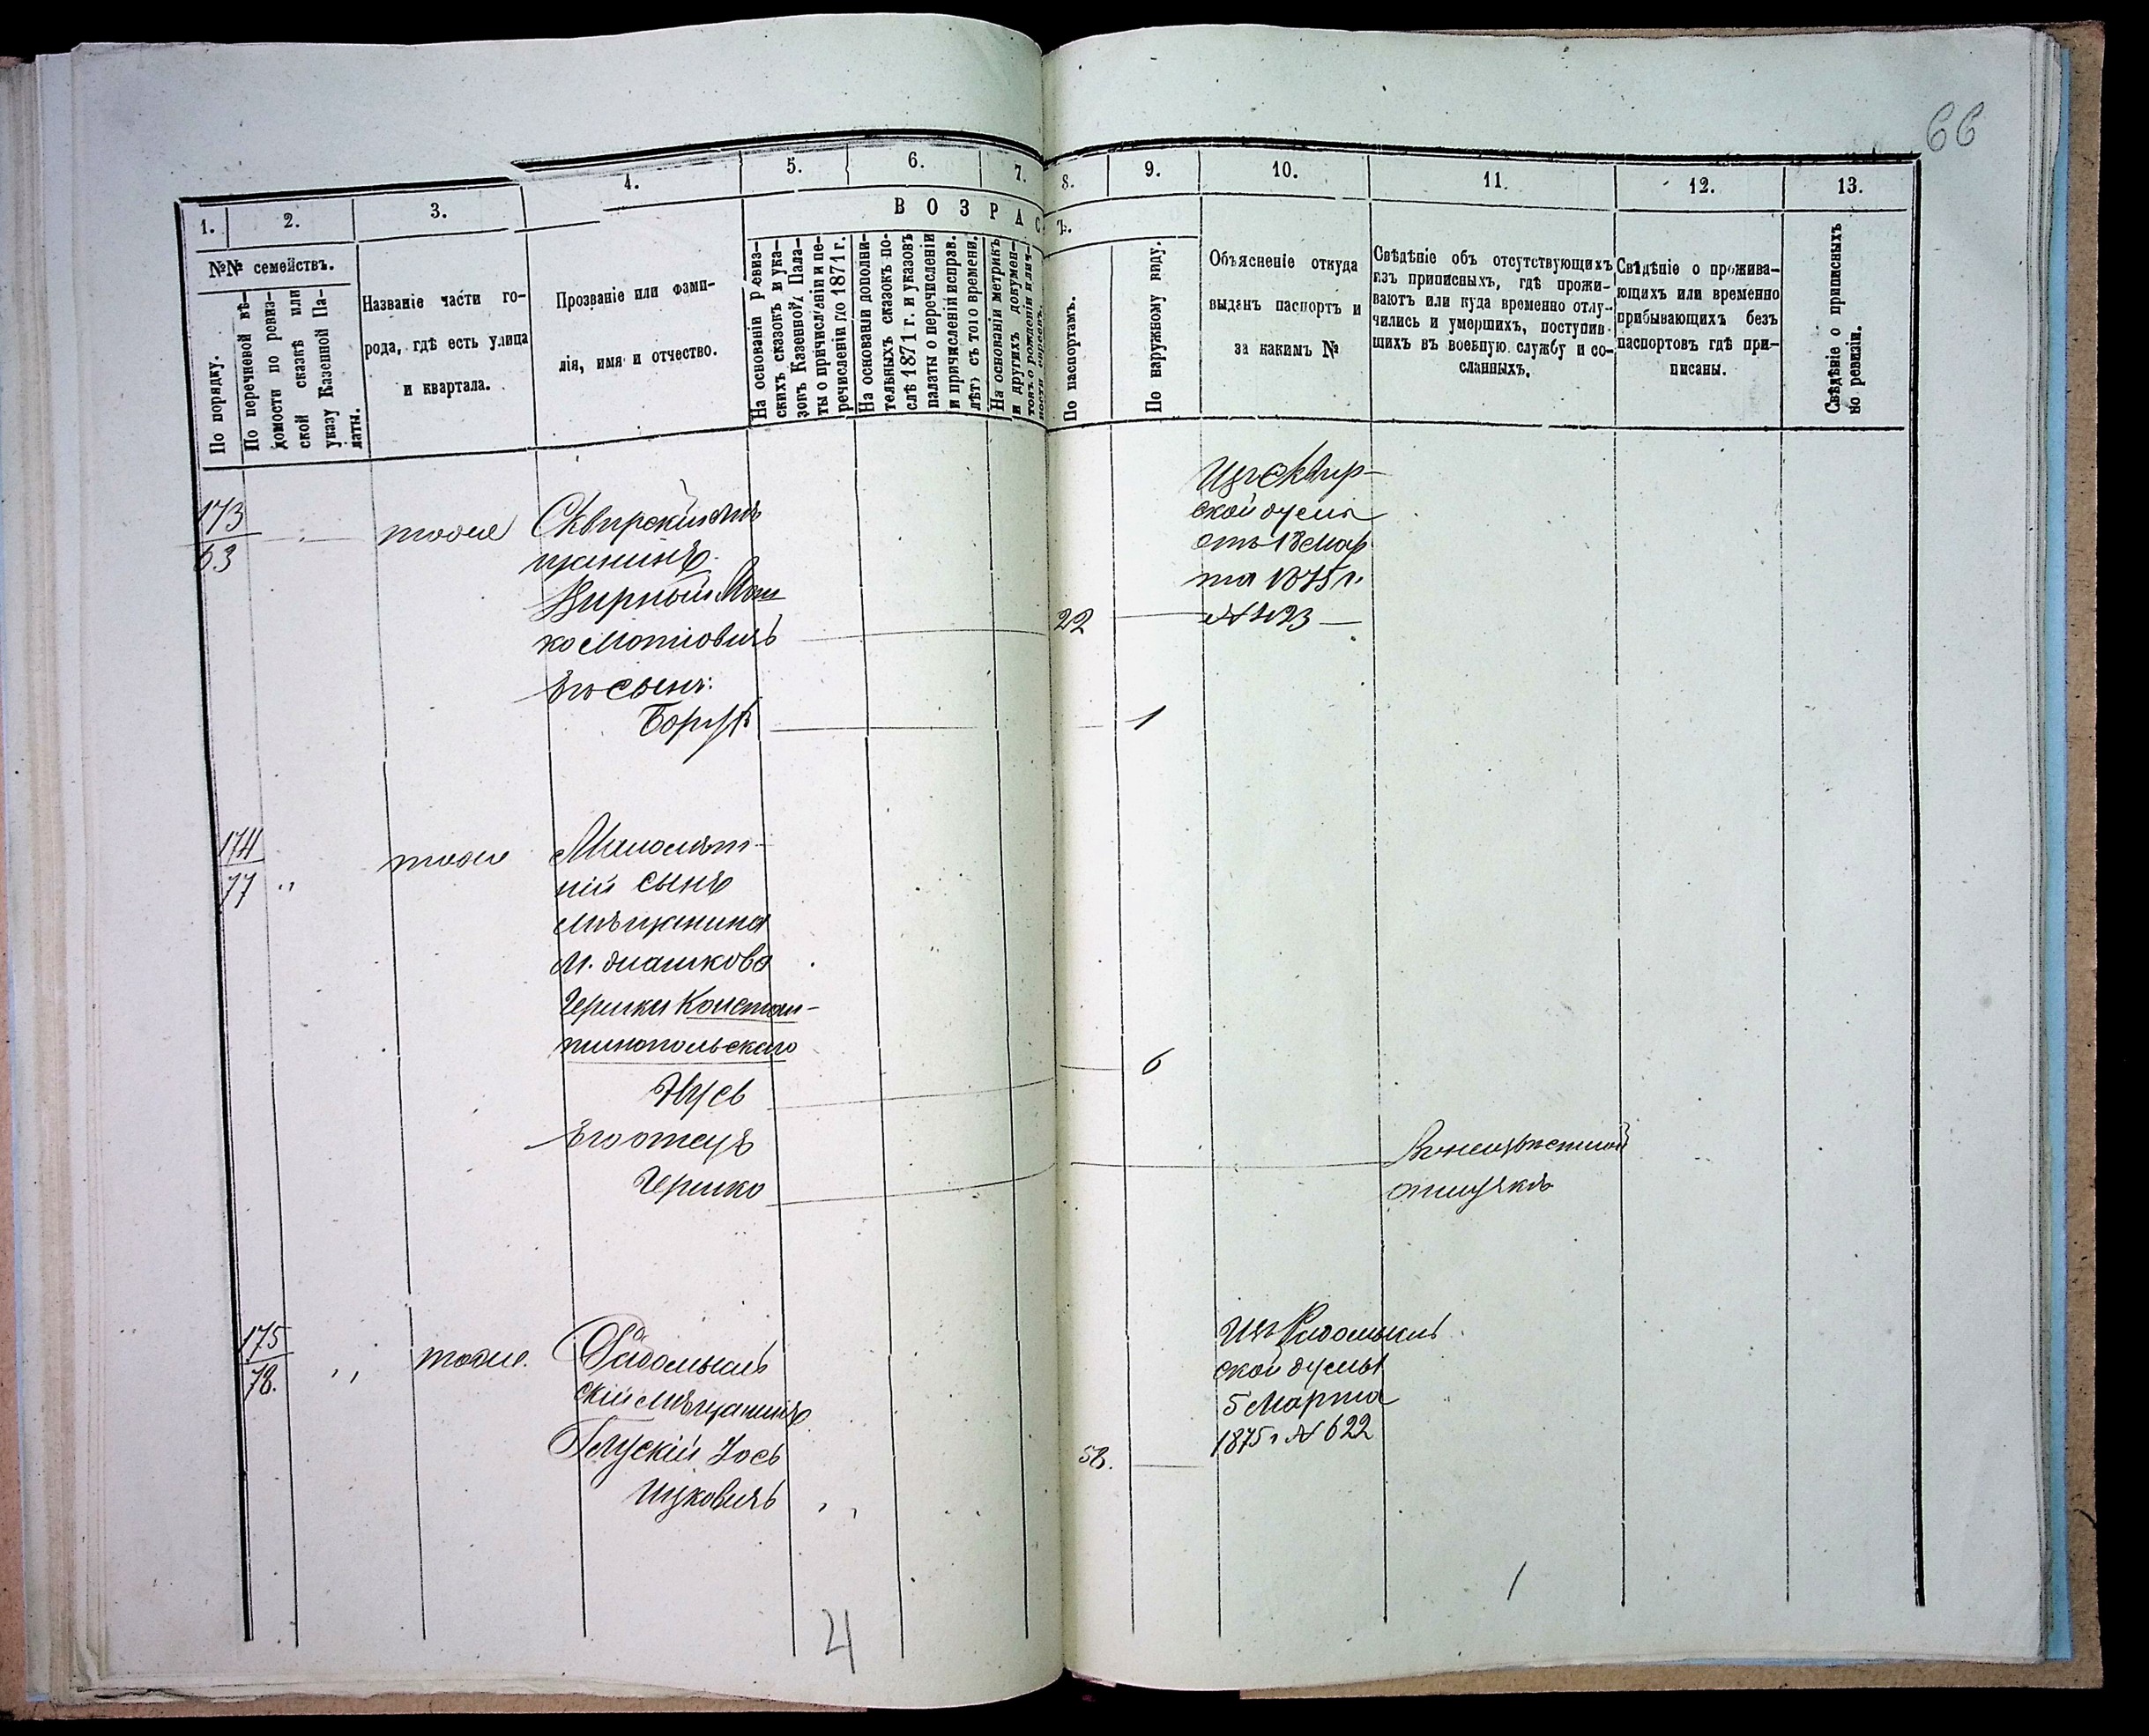 66
1.
2.
3.
4.
5.
6.
7.
8.
9.
10.
11.
12.
13.
ВОЗРАС
Ъ.
№№ семействъ.
По порядку.
По перечневой вѣ-
домости по ревиз-
ской сказкѣ или
указу Казенной Па-
латы.
Названіе части го-
рода, гдѣ есть улица
и квартала.
Прозваніе или фами-
лія, имя и отчество.
На основаніи ревиз-
скихъ сказокъ и ука-
зовъ Казенной Пала-
ты о причисленіи и пе-
речисленіи до 1871 г.
На основаніи дополни-
тельныхъ сказокъ по-
слѣ 1871 г. и указовъ
палаты о перечисленіи
и причисленіи исправ.
лѣтъ съ того времени.
На основаніи метрикъ
и другихъ докумен-
товъ о рожденіи и лич-
По паспортамъ.
По наружному виду.
Объясненіе откуда
выданъ паспортъ и
за какимъ №
Свѣдѣніе объ отсутствующихъ
изъ приписныхъ, гдѣ прожи-
ваютъ или куда временно отлу-
чились и умершихъ, поступив-
шихъ въ военную службу и со-
сланныхъ.
Свѣдѣніе о прожива-
ющихъ или временно
прибывающихъ безъ
паспортовъ гдѣ при-
писаны.
Свѣдѣніе о приписныхъ
по ревизіи.
173
63
тоже
Сквирскій мѣ
щанинъ
Вирный Мош
ко Мотіовичъ
22
Изъ Сквир-
ской думы
отъ 18 Мар
та 1875 г.
№ 423
Его сынъ:
Борухъ
1
174
77 "
тоже
Малолѣт-
ній сынъ
Мѣщанина
М. Дашкова
Гершки Констан-
тинопольскаго
Нусь
6
Его отецъ
Гершко
Въ неизвѣстной
отлучкѣ
175
78. "
тоже.
Радомысль
скій Мѣщанинъ
Глускій Іось
Ицковичъ "
58.
Изъ Радомысль
ской думы
5 Марта
1875 г. № 622
4
1